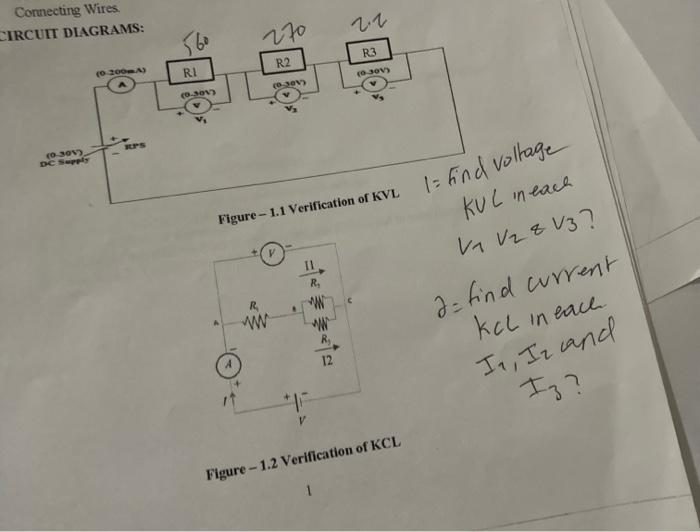 Connecting Wires.
CIRCUIT DIAGRAMS:
560
270
2.2
R1
R2
R3
(0-200mA)
A
(0-30V)
V
+
-
V1
(0-30V)
V
+
-
V2
(0-30V)
V
+
-
V3
+
-
RPS
(0-30V)
DC Supply
Figure – 1.1 Verification of KVL
1= find voltage
KVL in each
V1 V2 & V3?
+
V
-
I1
R1
R1
A
B
C
R1
I2
-
A
+
I
+
-
V
2= find current
KCL in each
I1, I2 and
I3?
Figure – 1.2 Verification of KCL
1